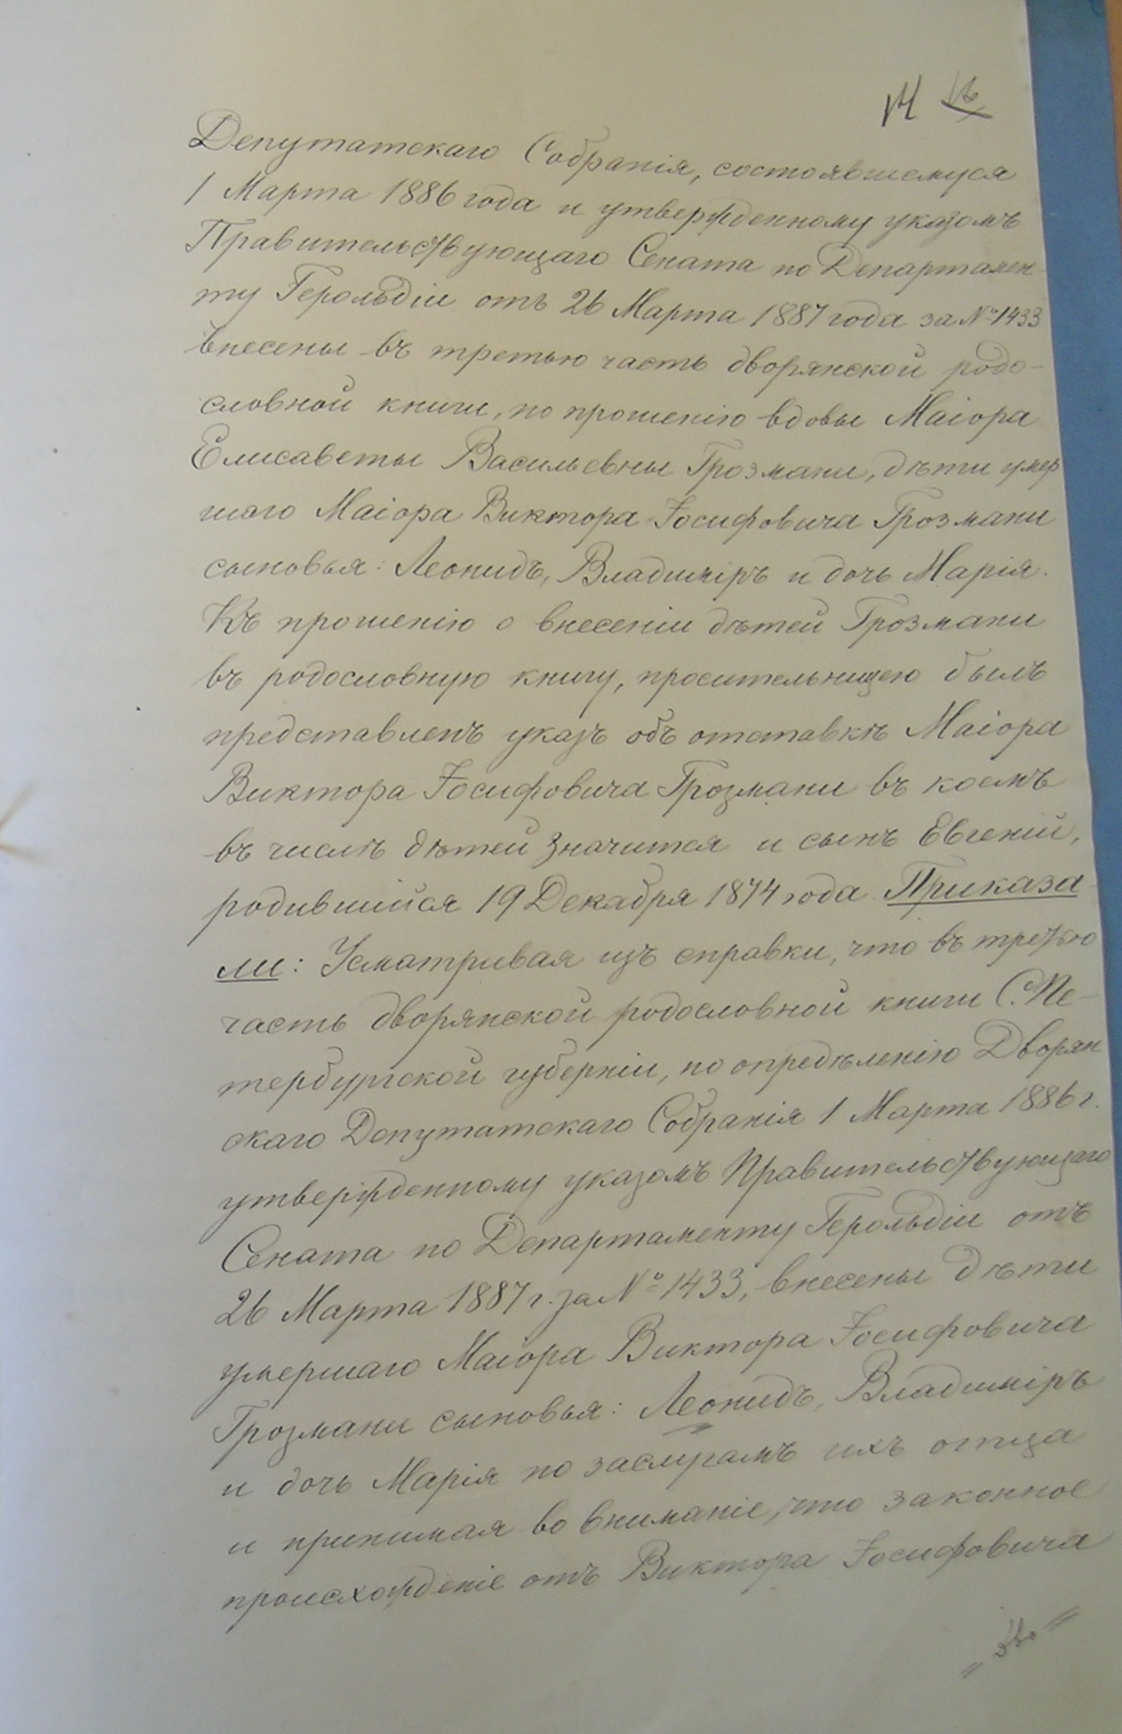 14
Депутатскаго Собранія, состоявшемуся
1 Марта 1886 года и утвержденному указомъ
Правительствующаго Сената по Департамен-
ту Герольдіи отъ 26 Марта 1887 года за № 1433
внесены въ третью часть дворянской родо-
словной книги, по прошенію вдовы Маіора
Елисаветы Васильевны Грозмани, дѣти умер
шаго Маіора Виктора Іосифовича Грозмани
сыновья: Леонидъ, Владиміръ и дочь Марія.
Къ прошенію о внесеніи дѣтей Грозмани
въ родословную книгу, просительницею былъ
представленъ указъ объ отставкѣ Маіора
Виктора Іосифовича Грозмани въ коемъ
въ числѣ дѣтей значится и сынъ Евгеній,
родившійся 19 Декабря 1874 года. Приказа-
ли: Усматривая изъ справки, что въ третью
часть дворянской родословной книги С. Пе-
тербургской губерніи, по опредѣленію Дворян
скаго Депутатскаго Собранія 1 Марта 1886 г.
утвержденному указомъ Правительствующаго
Сената по Департаменту Герольдіи отъ
26 Марта 1887 г. за № 1433, внесены дѣти
умершаго Маіора Виктора Іосифовича
Грозмани сыновья: Леонидъ, Владиміръ
и дочь Марія по заслугамъ ихъ отца
и принимая во вниманіе, что законное
происхожденіе отъ Виктора Іосифовича